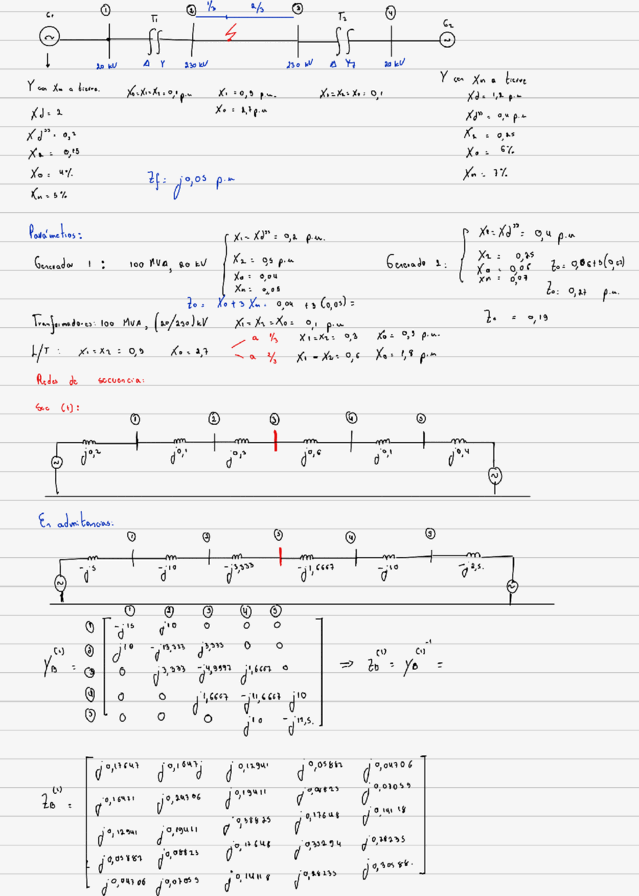 G₁ ① T₁ ② 1/3 2/3 ③ T₂ ④ G₂
20 kV Δ Y 230 kV 230 kV Δ Y 20 kV
Y con Xn a tierra. X₀=X₁=X₂=0,1 p.u X₁ = 0,9 p.u. X₁=X₂=X₀ = 0,1 Y con Xn a tierra
Xd = 2 X₀ = 2,7 p.u Xd = 1,2 p.u
Xd'' = 0,2 Xd'' = 0,4 p.u
X₂ = 0,15 X₂ = 0,25
X₀ = 4% X₀ = 6%
Xn = 5% Xn = 7%
Zf = j0,05 p.u
Parámetros:
Generador 1: 100 MVA, 20 kV
X₁ = Xd'' = 0,2 p.u.
X₀ = 0,04
Xn = 0,05
Z₀ = X₀ + 3 Xn = 0,04 + 3 (0,05) =
Z₀ = 0,19
Generador 2:
Xd'' = 0,4 p.u
X₂ = 0,25
X₀ = 0,06
Xn = 0,07
Z₀ = 0,06 + 3(0,07)
Z₀ = 0,27 p.u.
Transformadores: 100 MVA, (20/230) kV X₁ = X₂ = X₀ = 0,1 p.u.
L/T: X₁=X₂ = 0,9 X₀ = 2,7
a 1/3 X₁=X₂ = 0,3 X₀ = 0,9 p.u.
a 2/3 X₁=X₂ = 0,6 X₀ = 1,8 p.u
Redes de secuencia:
Sec (1):
① ② ③ ④ ⑤
j0,2 j0,1 j0,3 j0,6 j0,1 j0,4
En admitancias:
① ② ③ ④ ⑤
-j5 -j10 -j3,333 -j1,6667 -j10 -j2,5.
① ② ③ ④ ⑤
① -j15 j10 0 0 0
② j10 -j13,333 j3,333 0 0
Y_B⁽¹⁾ = ③ 0 j3,333 -j4,9997 j1,6667 0 ⇒ Z_B⁽¹⁾ = Y_B⁽¹⁾⁻¹ =
④ 0 0 j1,6667 -j11,6667 j10
⑤ 0 0 0 j10 -j12,5.
j0,17647 j0,1647 j0,12941 j0,05882 j0,04706
j0,16471 j0,24706 j0,19411 j0,08823 j0,07059
Z_B⁽¹⁾ =
j0,12941 j0,19411 j0,38825 j0,17648 j0,14118
j0,05882 j0,08823 j0,17648 j0,35294 j0,28235
j0,04706 j0,07059 j0,14118 j0,28235 j0,30588.